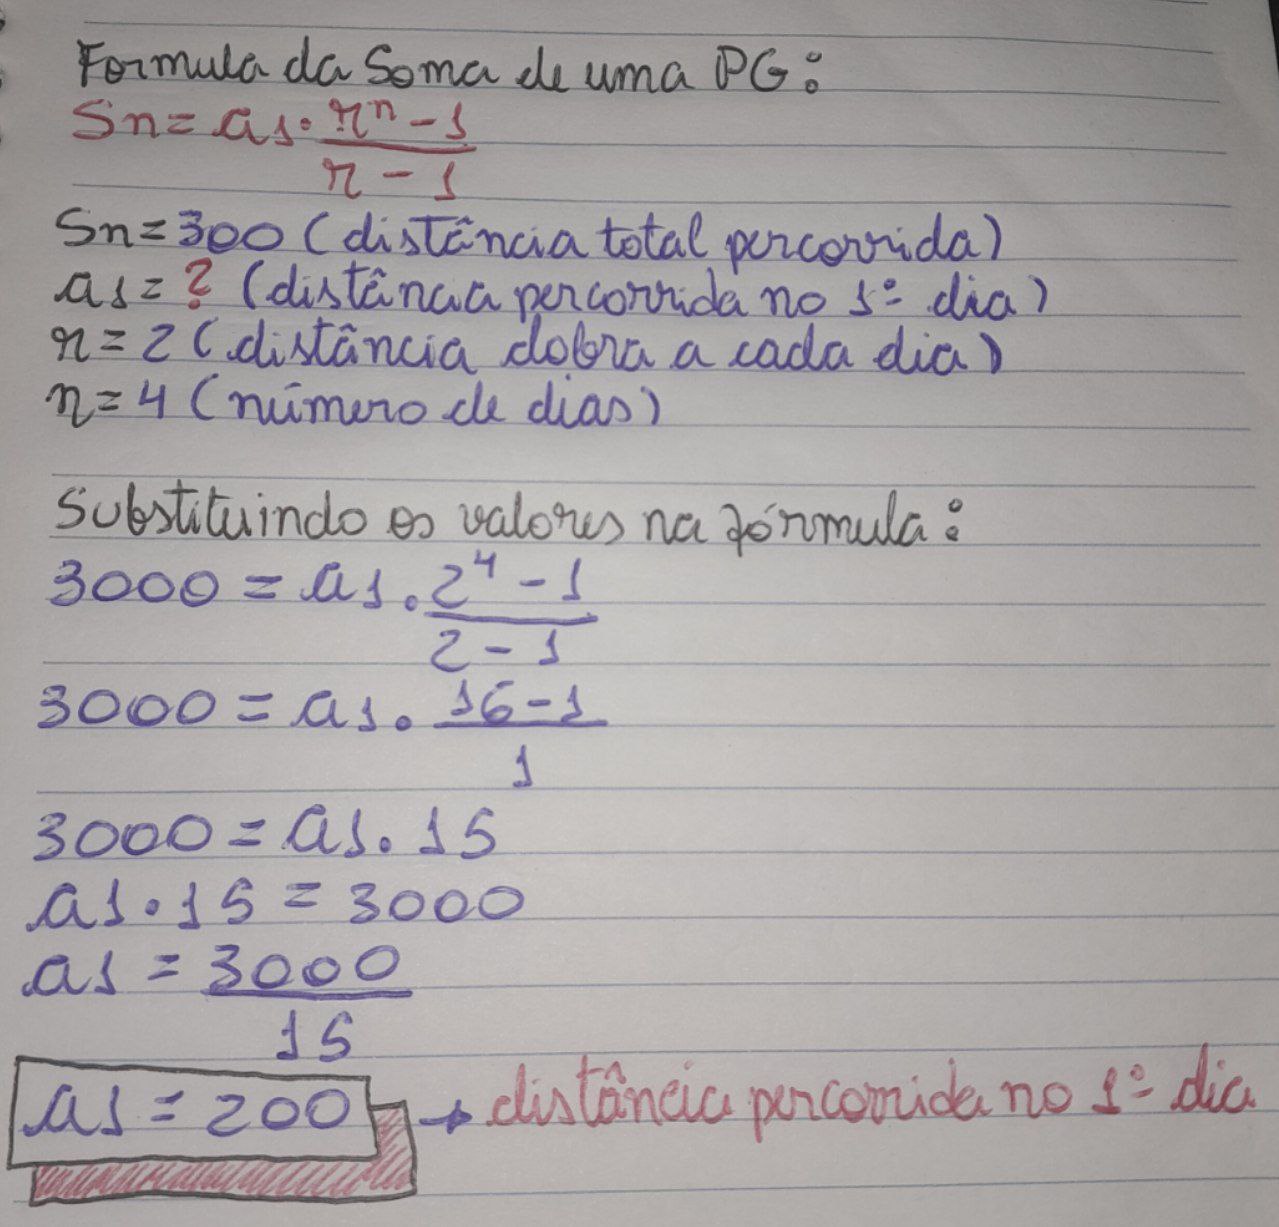 Formula da Soma de uma PG:
Sn = a1 . r^n - 1 / r - 1
Sn = 300 (distância total percorrida)
a1 = ? (distância percorrida no 1º dia)
r = 2 (distância dobra a cada dia)
n = 4 (número de dias)
Substituindo os valores na fórmula:
3000 = a1 . 2^4 - 1 / 2 - 1
3000 = a1 . 16 - 1 / 1
3000 = a1 . 15
a1 . 15 = 3000
a1 = 3000 / 15
a1 = 200 → distância percorrida no 1º dia